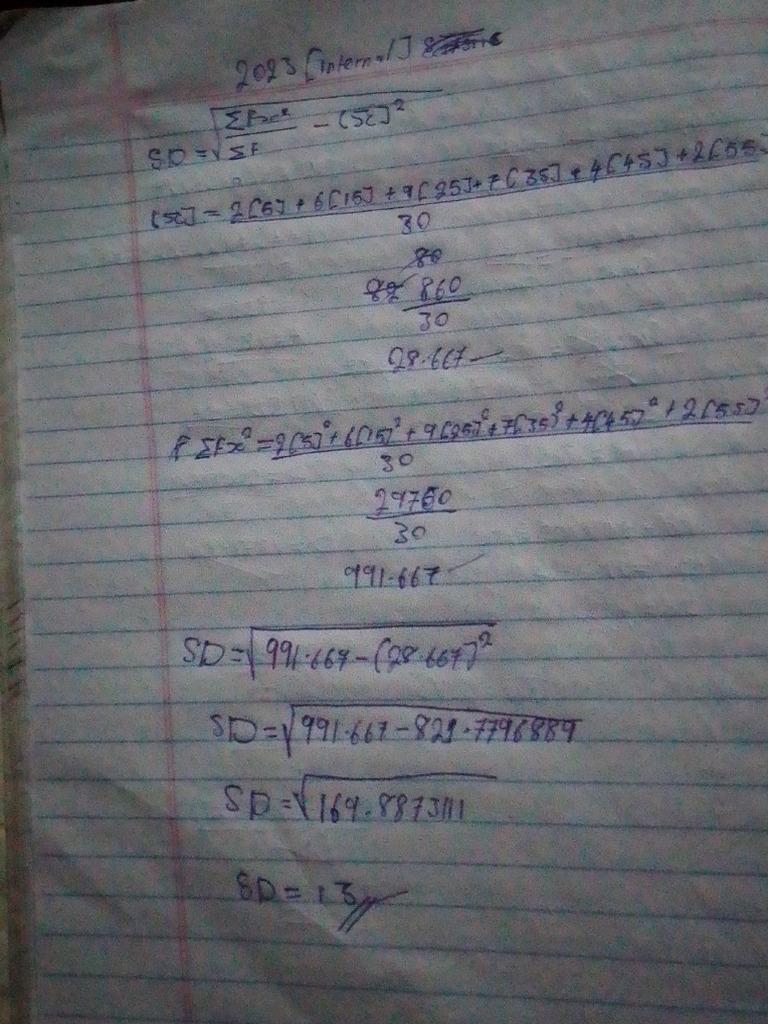 2023 [internal]
SD = √ΣFx² / ΣF - (x̄)²
[x̄] = 2[5] + 6[15] + 9[25] + 7[35] + 4[45] + 2[55]
30
80
82 860
30
28.667
ΣFx² = 2[5]² + 6[15]² + 9[25]² + 7[35]² + 4[45]² + 2[55]²
30
29750
30
991.667
SD = √991.667 - (28.667)²
SD = √991.667 - 821.7796889
SD = √169.8873111
SD = 13